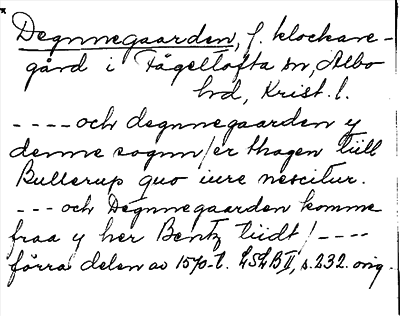 Degnnegaarden, f. klockare-
gård i Fågeltofta sn, Albo
hd, Krist. l.
---- och degnnegaarden y
denne sognn/er thagen tiill
Bullerup quo iure nescitur.
--- och Degnnegaarden komme
fraa y her Bentz tiidt/----
förra delen av 1570-t. LSLB II, s. 232. orig.